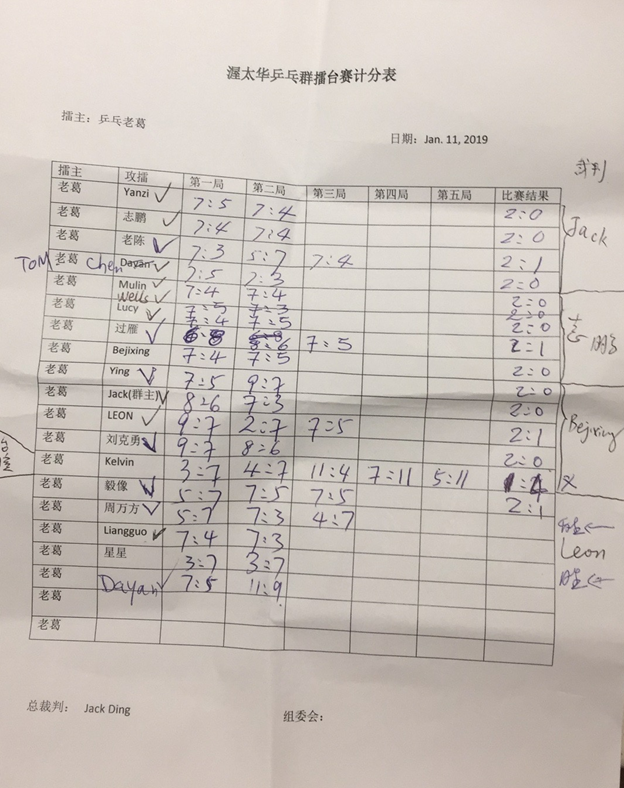 渥太华乒乓群擂台赛计分表
擂主：乒乓老葛
日期：Jan. 11, 2019
裁判
擂主 攻擂 第一局 第二局 第三局 第四局 第五局 比赛结果
老葛 Yanzi 7:5 7:4 2:0
Jack
老葛 志鹏 7:4 7:4 2:0
老葛 老陈 7:3 5:7 7:4 2:1
TOM Chen
老葛 Dayan 7:5 7:3 2:0
老葛 Mulin 7:4 7:4 2:0
Wells 7:5 7:3 2:0
老葛 Lucy 7:4 7:5 2:0
老葛 过雁 6:8 8:6 7:5 2:1
老葛 Bejixing 7:4 7:5 2:0
老葛 Ying 7:5 9:7 2:0
老葛 Jack(群主) 8:6 7:3 2:0
Bejixing
老葛 LEON 9:7 2:7 7:5 2:1
老葛 刘克勇 9:7 8:6 2:0
老葛 Kelvin 3:7 4:7 11:4 7:11 5:11 1:4
老葛 毅像 5:7 7:5 7:5 2:1
老葛 周万方 5:7 7:3 4:7
老葛 Liangguo 7:4 7:3
Leon
老葛 星星 3:7 3:7
老葛 Dayan 7:5 11:9
老葛
老葛
总裁判： Jack Ding
组委会：